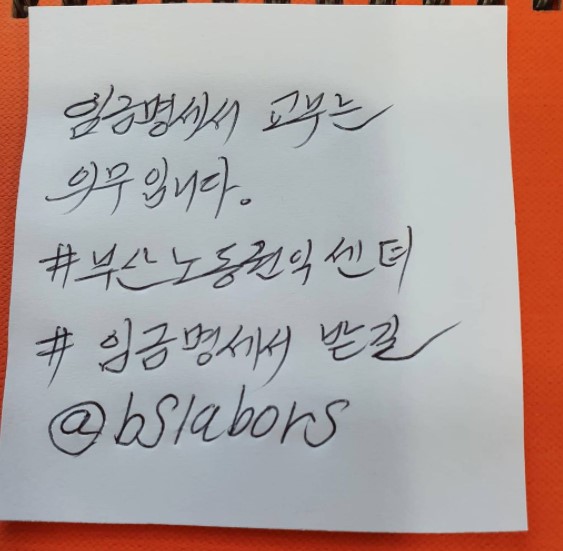 임금명세서 교부는
의무입니다.
#부산노동권익센터
# 임금명세서 받길
@bslabors